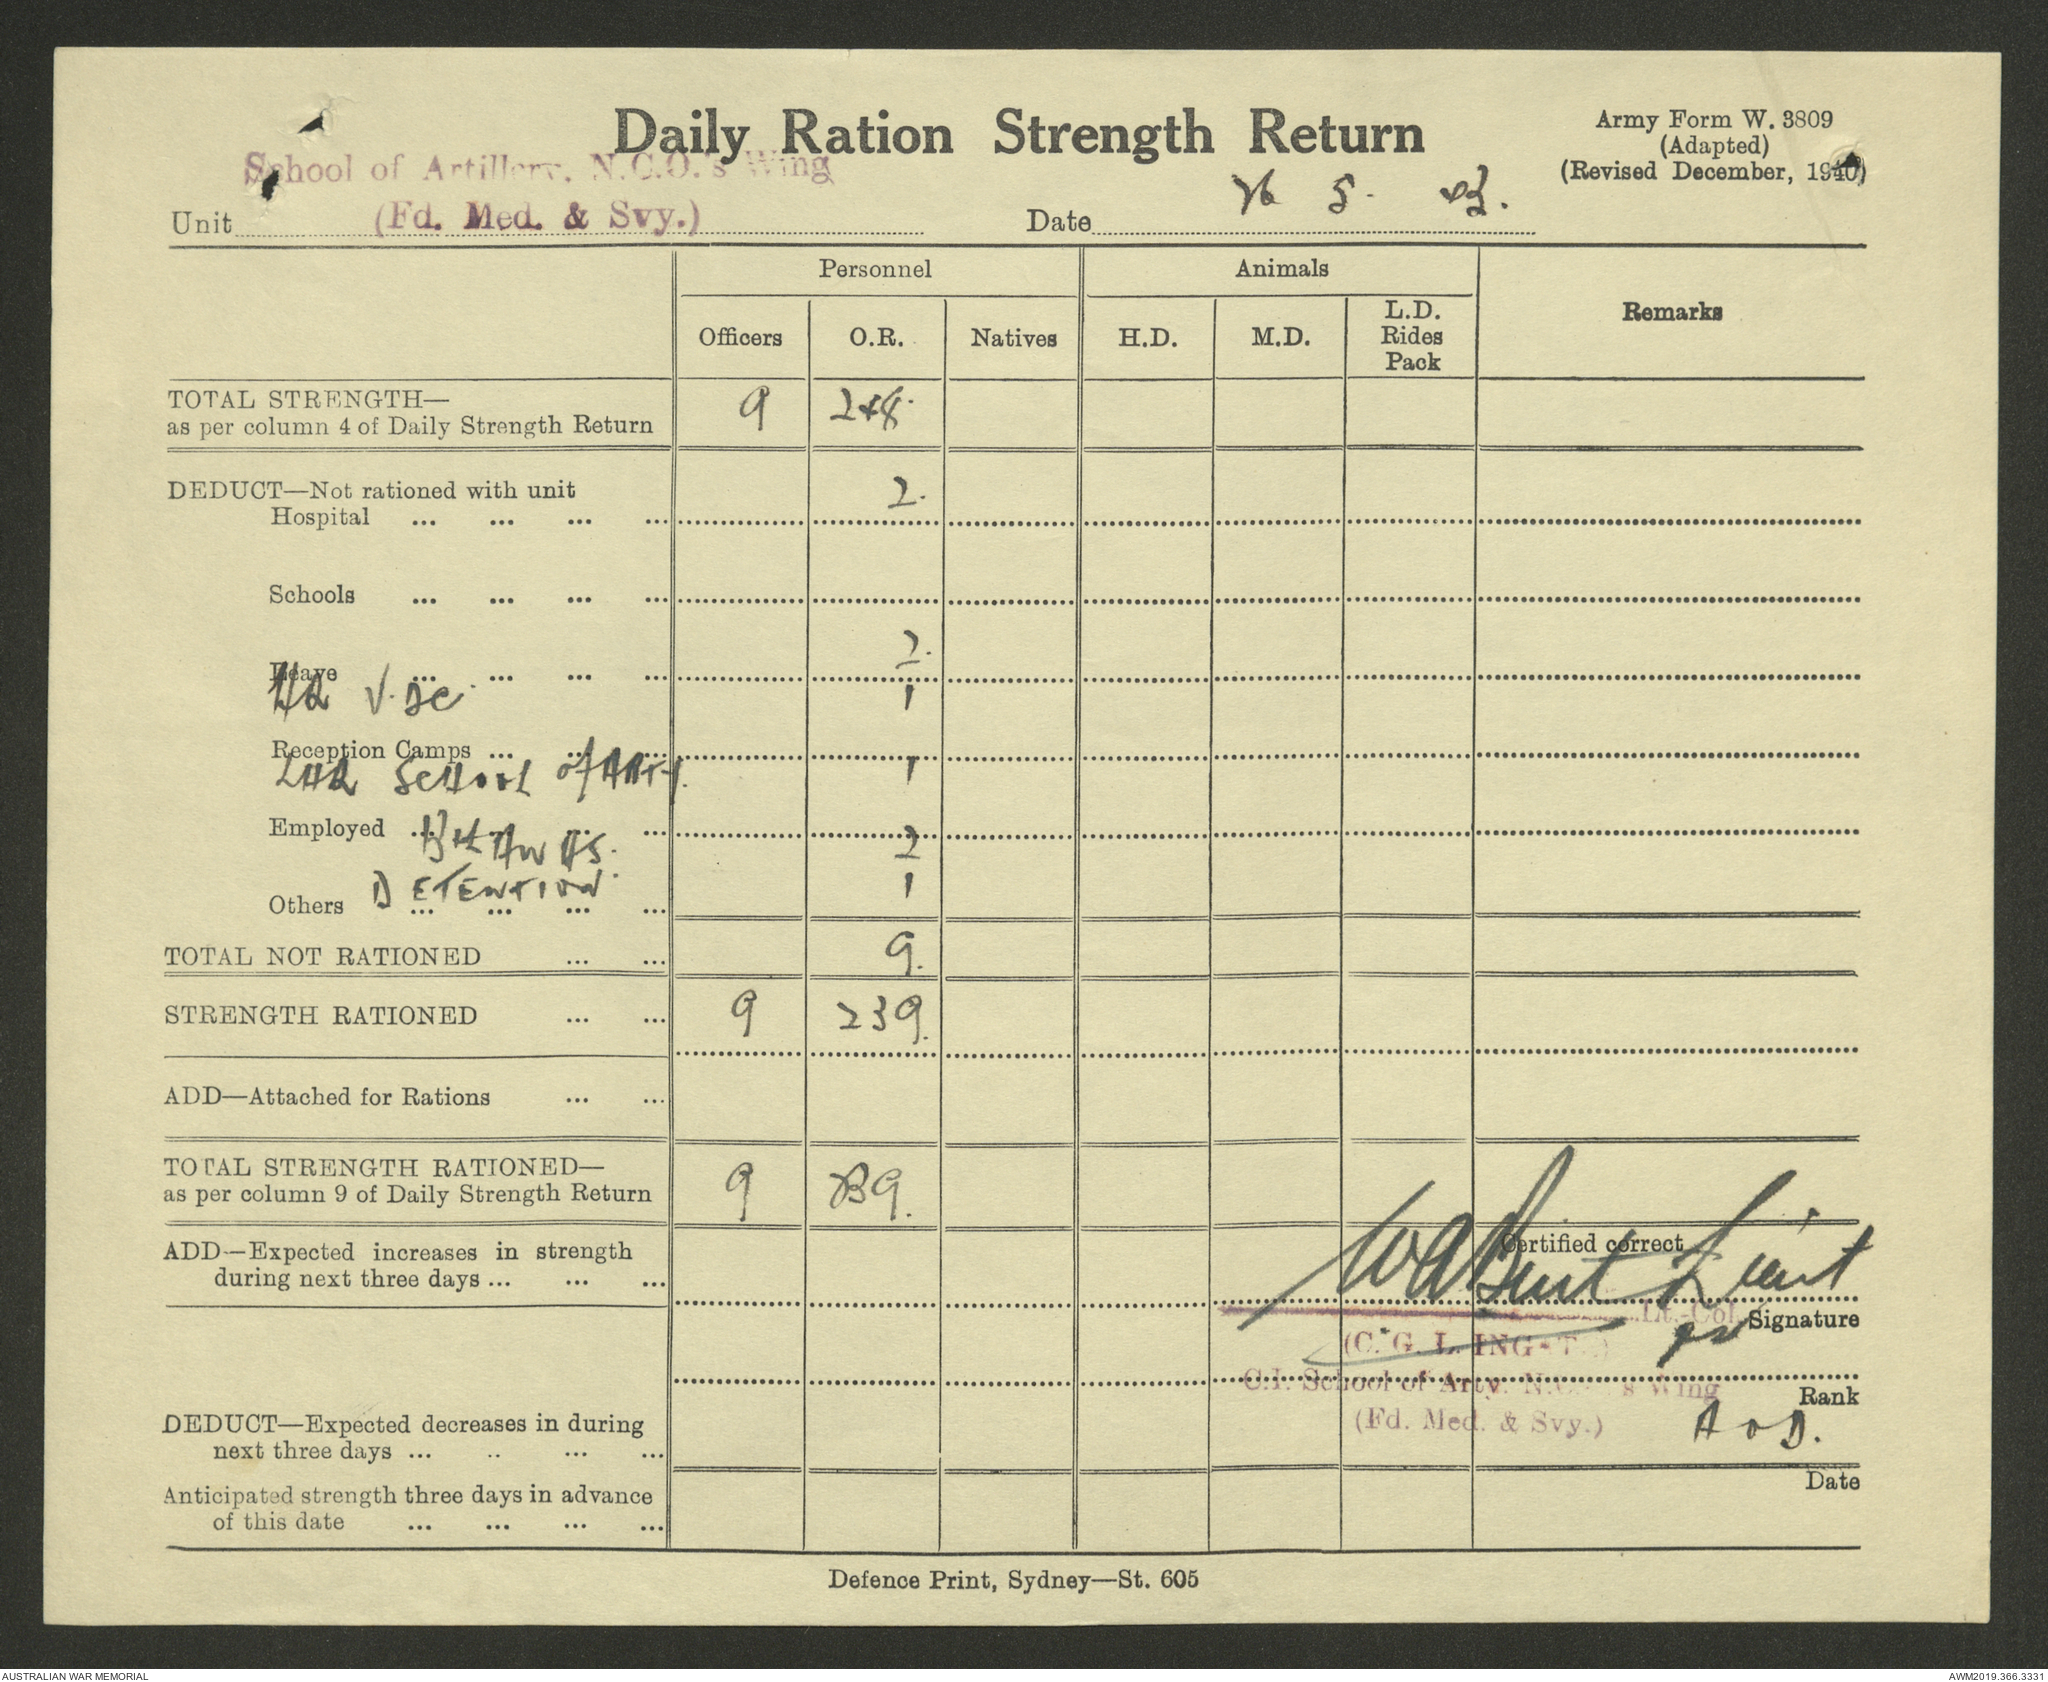 Daily Ration Strength Return
Army Form W. 3809
(Adapted)
(Revised December, 1940)
School of Artillery, N.C.O.'s Wing
Unit (Fd. Med. & Svy.)
Date 26 5. 43.
Personnel Animals Remarks
Officers O.R. Natives H.D. M.D. L.D. Rides Pack
TOTAL STRENGTH—
as per column 4 of Daily Strength Return 9 248.
DEDUCT—Not rationed with unit
Hospital ... ... ... ... 2.
Schools ... ... ... ...
Leave ... ... ... ... 2.
V.DC. 1
Reception Camps ... ... ...
LHQ SCHOOL of ARTY. 1
Employed ... ... ... ...
AWAS. 2
DETENTION. 1
Others ... ... ... ...
TOTAL NOT RATIONED ... ... 9.
STRENGTH RATIONED ... ... 9 239.
ADD—Attached for Rations ... ...
TOTAL STRENGTH RATIONED—
as per column 9 of Daily Strength Return 9 239.
ADD—Expected increases in strength
during next three days ... ... ...
Certified correct
Lieut
Lt.-Col.
Signature
for
C.I. School of Arty. N.C.O.'s Wing
Rank
(Fd. Med. & Svy.)
A o D.
DEDUCT—Expected decreases in during
next three days ... .. ... ...
Date
Anticipated strength three days in advance
of this date ... ... ... ...
Defence Print, Sydney—St. 605
AUSTRALIAN WAR MEMORIAL
AWM2019.366.3331